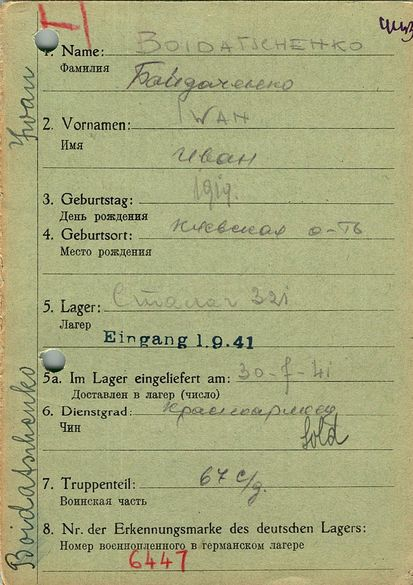 1. Name: BOIDATSCHENKO
Фамилия Байдаченко
2. Vornamen: IWAN
Имя Иван
3. Geburtstag: 1919.
День рождения
4. Geburtsort: Киевская о-ть
Место рождения
5. Lager: Сталаг 321
Лагер
Eingang 1.9.41
5a. Im Lager eingeliefert am: 30-7-41
Доставлен в лагер (число)
6. Dienstgrad: Красноармеец
Чин Sold
7. Truppenteil: 67 с/д.
Воинская часть
8. Nr. der Erkennungsmarke des deutschen Lagers:
Номер военнопленного в германском лагере
6447
Boidatschenko Iwan